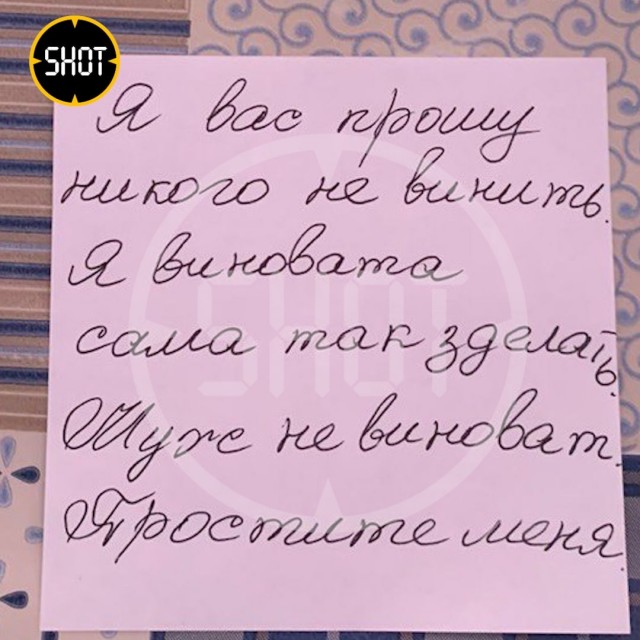 SHOT
Я вас прошу
никого не винить.
Я виновата
сама так зделать.
Муж не виноват.
Простите меня.
SHOT